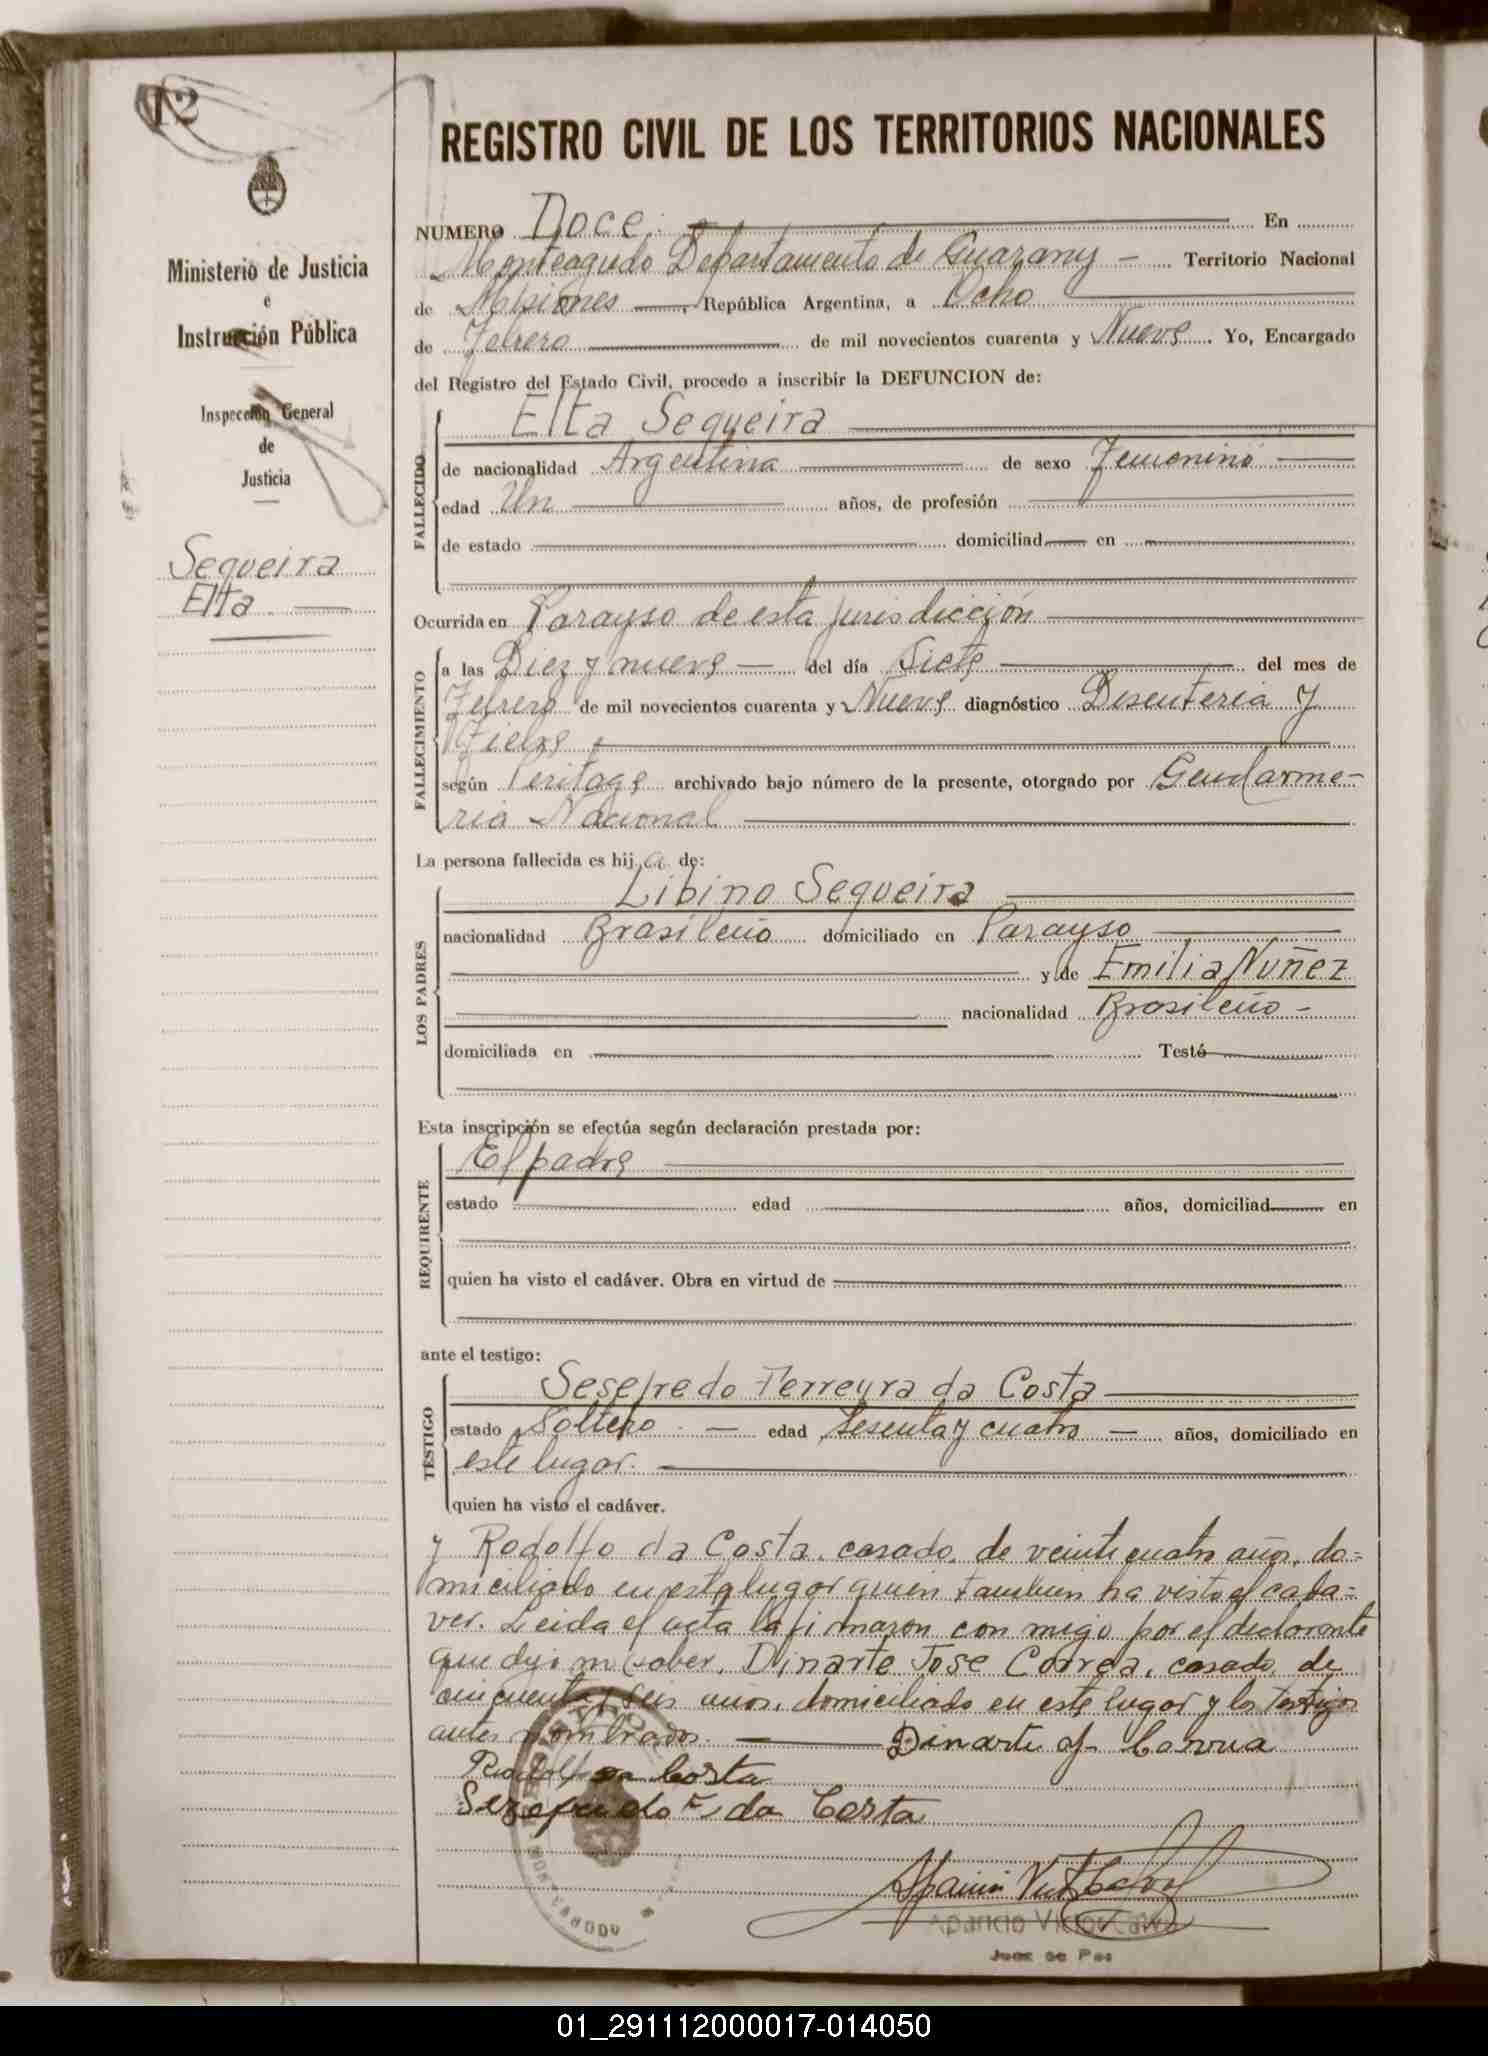 12
REGISTRO CIVIL DE LOS TERRITORIOS NACIONALES
Ministerio de Justicia
e
Instrucción Pública
Inspección General
de
Justicia
Sequeira
Elta
NUMERO Doce. En
Monteagudo Departamento de Guarany Territorio Nacional
de Misiones, República Argentina, a Ocho
de Febrero de mil novecientos cuarenta y Nueve. Yo, Encargado
del Registro del Estado Civil, procedo a inscribir la DEFUNCION de:
FALLECIDO
Elta Sequeira
de nacionalidad Argentina de sexo Femenino
edad Un años, de profesión
de estado domiciliad en
Ocurrida en Parayso de esta jurisdicción
FALLECIMIENTO
a las Diez y nueve del día Siete del mes de
Febrero de mil novecientos cuarenta y Nueve diagnóstico Desenteria y
Fiebre
según Peritage archivado bajo número de la presente, otorgado por Gendarme-
ria Nacional
La persona fallecida es hij a de:
LOS PADRES
Libino Sequeira
nacionalidad Brasileño domiciliado en Parayso
y de Emilia Nuñez
nacionalidad Brasileño -
domiciliada en Testé
Esta inscripción se efectúa según declaración prestada por:
REQUIRENTE
El padre
estado edad años, domiciliad en
quien ha visto el cadáver. Obra en virtud de
ante el testigo:
TESTIGO
Sesefredo Ferreyra da Costa
estado Soltero edad Sesenta y cuatro años, domiciliado en
este lugar.
quien ha visto el cadáver.
y Rodolfo da Costa, casado, de veinte cuatro años, do=
miciliado en este lugar quien tambien ha visto el cada=
ver. Leida el acta la firmaron con migo por el declarante
que dijo no saber, Dinarte Jose Correa, casado de
cincuenta y seis años, domiciliado en este lugar y los testigos
antes nombrados. Dinarte J. Correa
Rodolfo da Costa
Sezefredo F. da Costa
Aparicio Victor Calvo
Juez de Paz
01_291112000017-014050